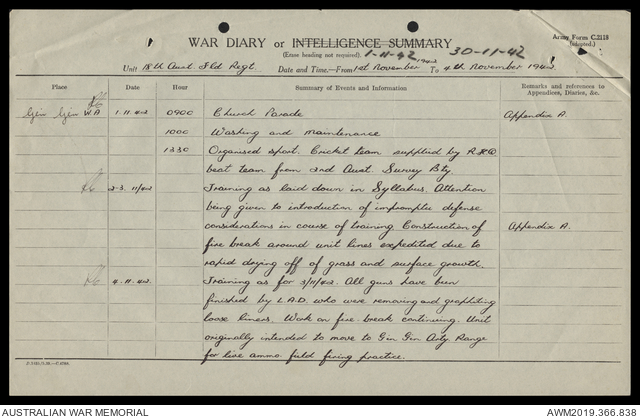 Army Form C.2118
(Adapted.)
WAR DIARY or INTELLIGENCE SUMMARY
(Erase heading not required).
1-11-42 30-11-42
Unit 18th Aust. Fld Regt. Date and Time—From 1st November 1942 To 4th November 1942.
Place Date Hour Summary of Events and Information Remarks and references to
Appendices, Diaries, &c.
Gin Gin WA 1.11.42 0900 Church Parade Appendix A.
1000 Washing and maintenance
1330 Organised sport. Cricket team supplied by R.H.Q
beat team from 2nd Aust. Survey Bty.
2-3. 11/42 Training as laid down in Syllabus. Attention
being given to introduction of impromptu defense
considerations in course of training. Construction of Appendix A.
fire break around unit lines expedited due to
rapid drying off of grass and surface growth.
4.11.42 Training as for 3/11/42. All guns have been
finished by L.A.D. who were removing and graphiting
loose liners. Work on fire break continuing. Unit
originally intended to move to Gin Gin Arty Range
for live ammo. field firing practice.
AUSTRALIAN WAR MEMORIAL AWM2019.366.838